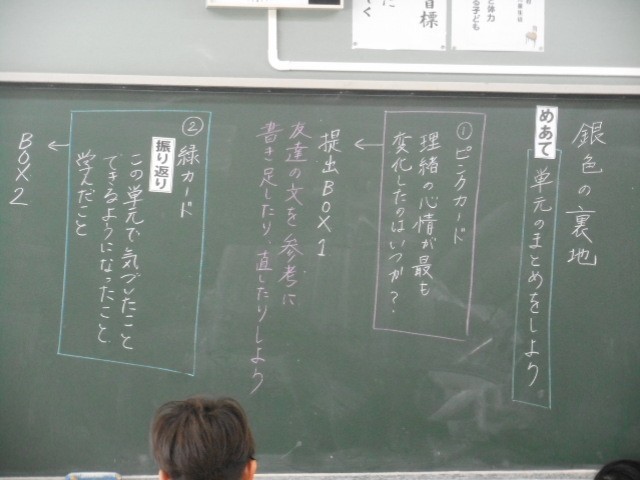 銀色の裏地
めあて
単元のまとめをしよう
①ピンクカード
理緒の心情が最も
変化したのはいつか?
← 提出BOX1
友達の文を参考に
書き足したり、直したりしよう
②緑カード
振り返り
この単元で気づいたこと
できるようになったこと
学んだこと
← BOX2